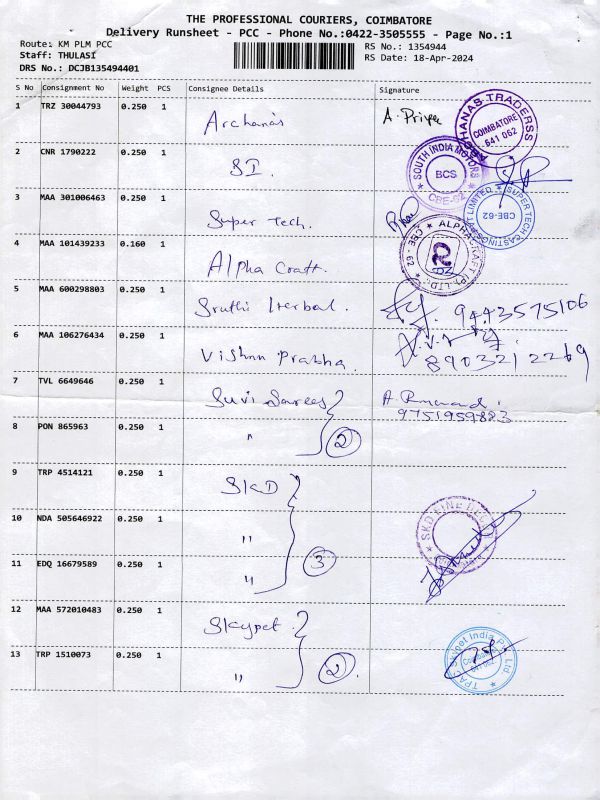 THE PROFESSIONAL COURIERS, COIMBATORE
Delivery Runsheet - PCC - Phone No.:0422-3505555 - Page No.:1
Route: KM PLM PCC
RS No.: 1354944
Staff: THULASI
RS Date: 18-Apr-2024
DRS No.: DCJB135494401
S No Consignment No Weight PCS Consignee Details Signature
1 TRZ 30044793 0.250 1 Archanas A. Priya
ARCHANAS TRADERSS COIMBATORE 641 062
2 CNR 1790222 0.250 1 SI.
SOUTH INDIA MOTORS BCS CBE-62
3 MAA 301006463 0.250 1 Super Tech.
SUPER TECH LIMITED CBE-62
4 MAA 101439233 0.160 1 Alpha Craft.
ALPHA CRAFT (P) LTD. CBE - 62
5 MAA 600298803 0.250 1 Sruthi Herbal. 9443575106
6 MAA 106276434 0.250 1 Vishnu Prabha. 8903212269
7 TVL 6649646 0.250 1 Suvi Sarees A.
9751959883
8 PON 865963 0.250 1 " 2
9 TRP 4514121 0.250 1 SKD
SKD
10 NDA 505646922 0.250 1 "
11 EDQ 16679589 0.250 1 " 3
12 MAA 572010483 0.250 1 Skypet
Skypet India Pvt Ltd
13 TRP 1510073 0.250 1 " 2